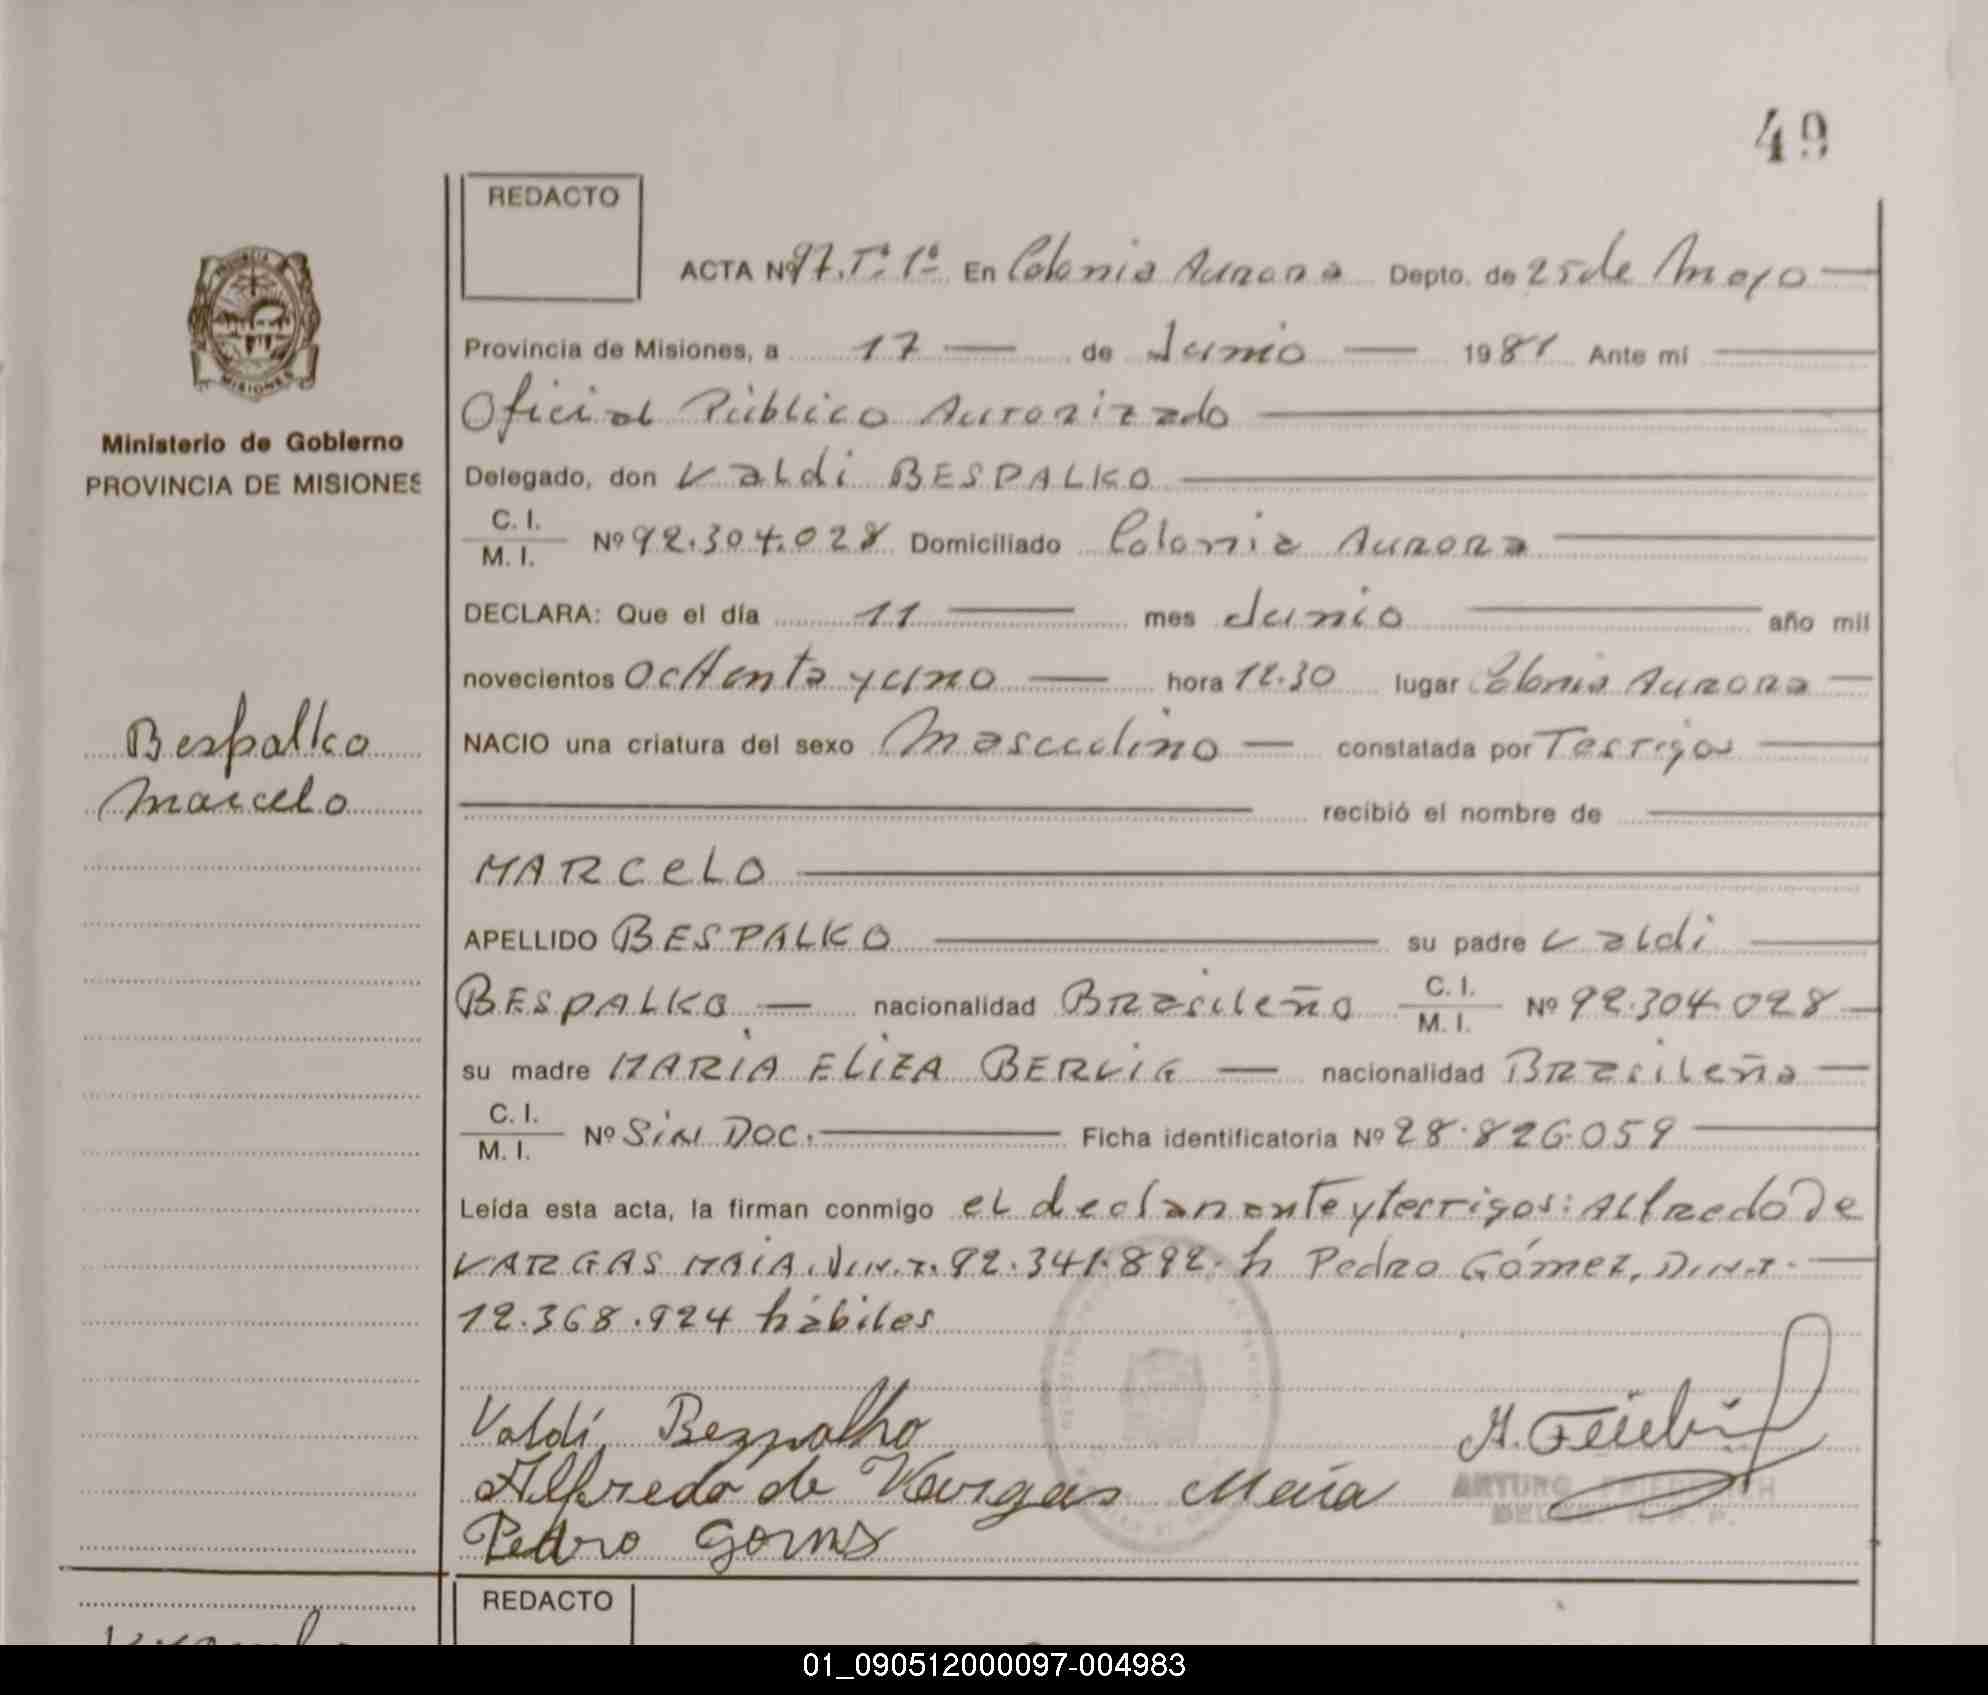 49
REDACTO
ACTA Nº 97. Tº 1º En Colonia Aurora Depto. de 25 de Mayo
Provincia de Misiones, a 17 de Junio 1981 Ante mí
Oficial Público Autorizado
Ministerio de Gobierno
PROVINCIA DE MISIONES
Delegado, don Valdi BESPALKO
C. I.
M. I. Nº 92.304.028 Domiciliado Colonia Aurora
DECLARA: Que el día 11 mes Junio año mil
novecientos ochenta y uno hora 12.30 lugar Colonia Aurora
Bespalko
Marcelo
NACIO una criatura del sexo Masculino constatada por Testigos
recibió el nombre de
MARCELO
APELLIDO BESPALKO su padre Valdi
BESPALKO nacionalidad Brasileño C. I. M. I. Nº 92.304.028
su madre MARIA ELIZA BERVIG nacionalidad Brasileña
C. I.
M. I. Nº SIN DOC. Ficha identificatoria Nº 28.826.059
Leída esta acta, la firman conmigo el declarante y testigos: Alfredo De
VARGAS MAIA, D.N.I. 92.341.892 Pedro Gómez, D.N.I.
12.368.924 hábiles
Valdí Bezpalho
Alfredo de Vargas Maia
Pedro
ARTURO FRIEDRICH
REDACTO
01_090512000097-004983